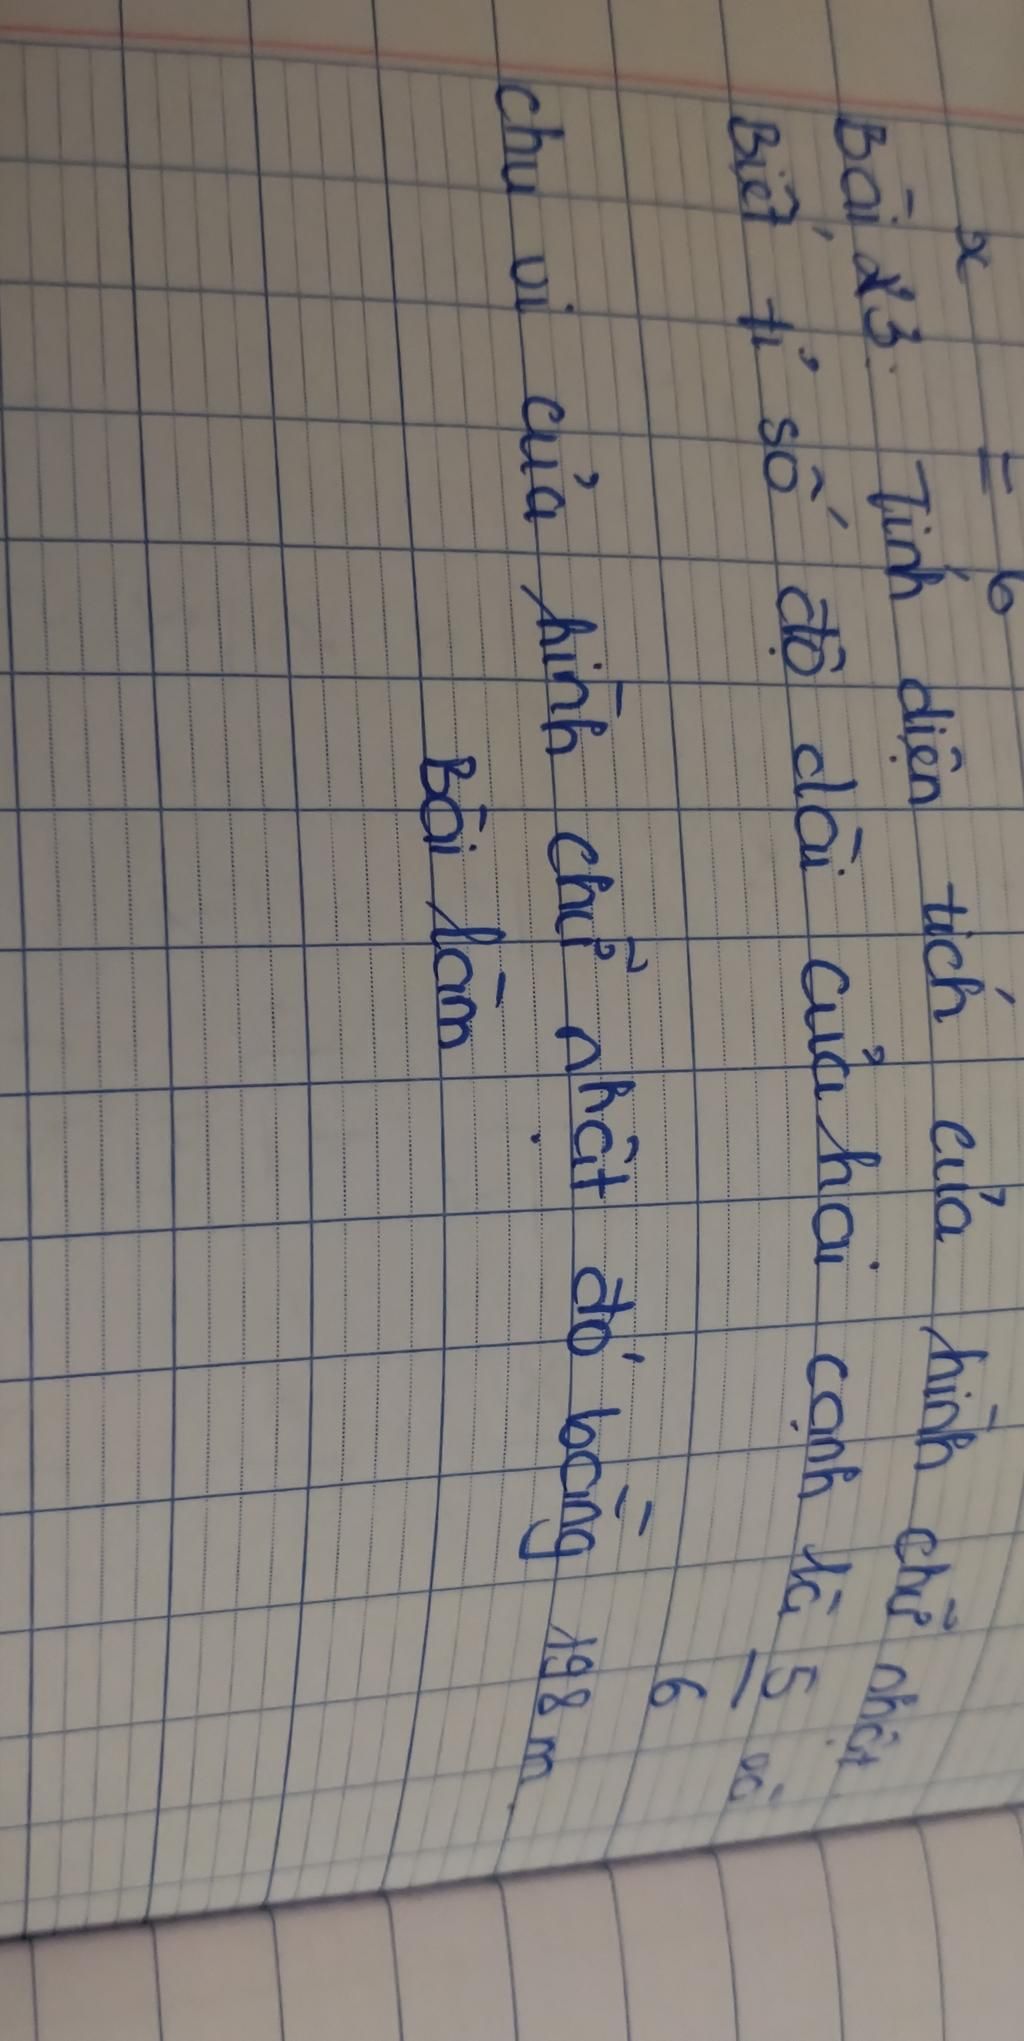 x = 6
Bài 23: Tính diện tích của hình chữ nhật
Biết tỉ số độ dài của hai cạnh là 5/6 và
chu vi của hình chữ nhật đó bằng 198 m.
Bài làm